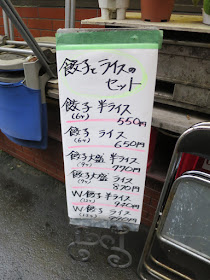 餃子とライスの
セット
餃子 半ライス
(6ヶ) 550円
餃子 ライス
(6ヶ) 650円
餃子大盛 半ライス
(9ヶ) 770円
餃子大盛 ライス
(9ヶ) 870円
W餃子 半ライス
(12ヶ)
W餃子 ライス
(12ヶ)